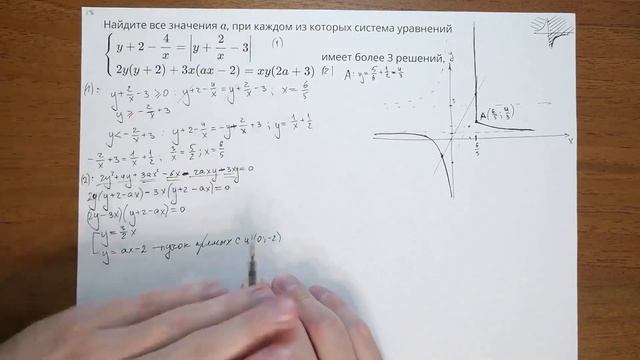 18
Найдите все значения a, при каждом из которых система уравнений
y + 2 − 4/x = |y + 2/x − 3| (1)
2y(y + 2) + 3x(ax − 2) = xy(2a + 3) (2)
имеет более 3 решений,
(1):
y + 2/x − 3 ≥ 0: y + 2 − 4/x = y + 2/x − 3; x = 6/5
y ≥ −2/x + 3
y < −2/x + 3: y + 2 − 4/x = −y − 2/x + 3; y = 1/x + 1/2
−2/x + 3 = 1/x + 1/2; 3/x = 5/2; x = 6/5
(2): 2y² + 4y + 3ax² − 6x − 2axy − 3xy = 0
2y(y + 2 − ax) − 3x(y + 2 − ax) = 0
(2y − 3x)(y + 2 − ax) = 0
y = 3/2 x
y = ax − 2 — пучок прямых с ц (0; −2)
A: y = 5/6 + 1/2 = 4/3
y
A(6/5; 4/3)
6/5
x